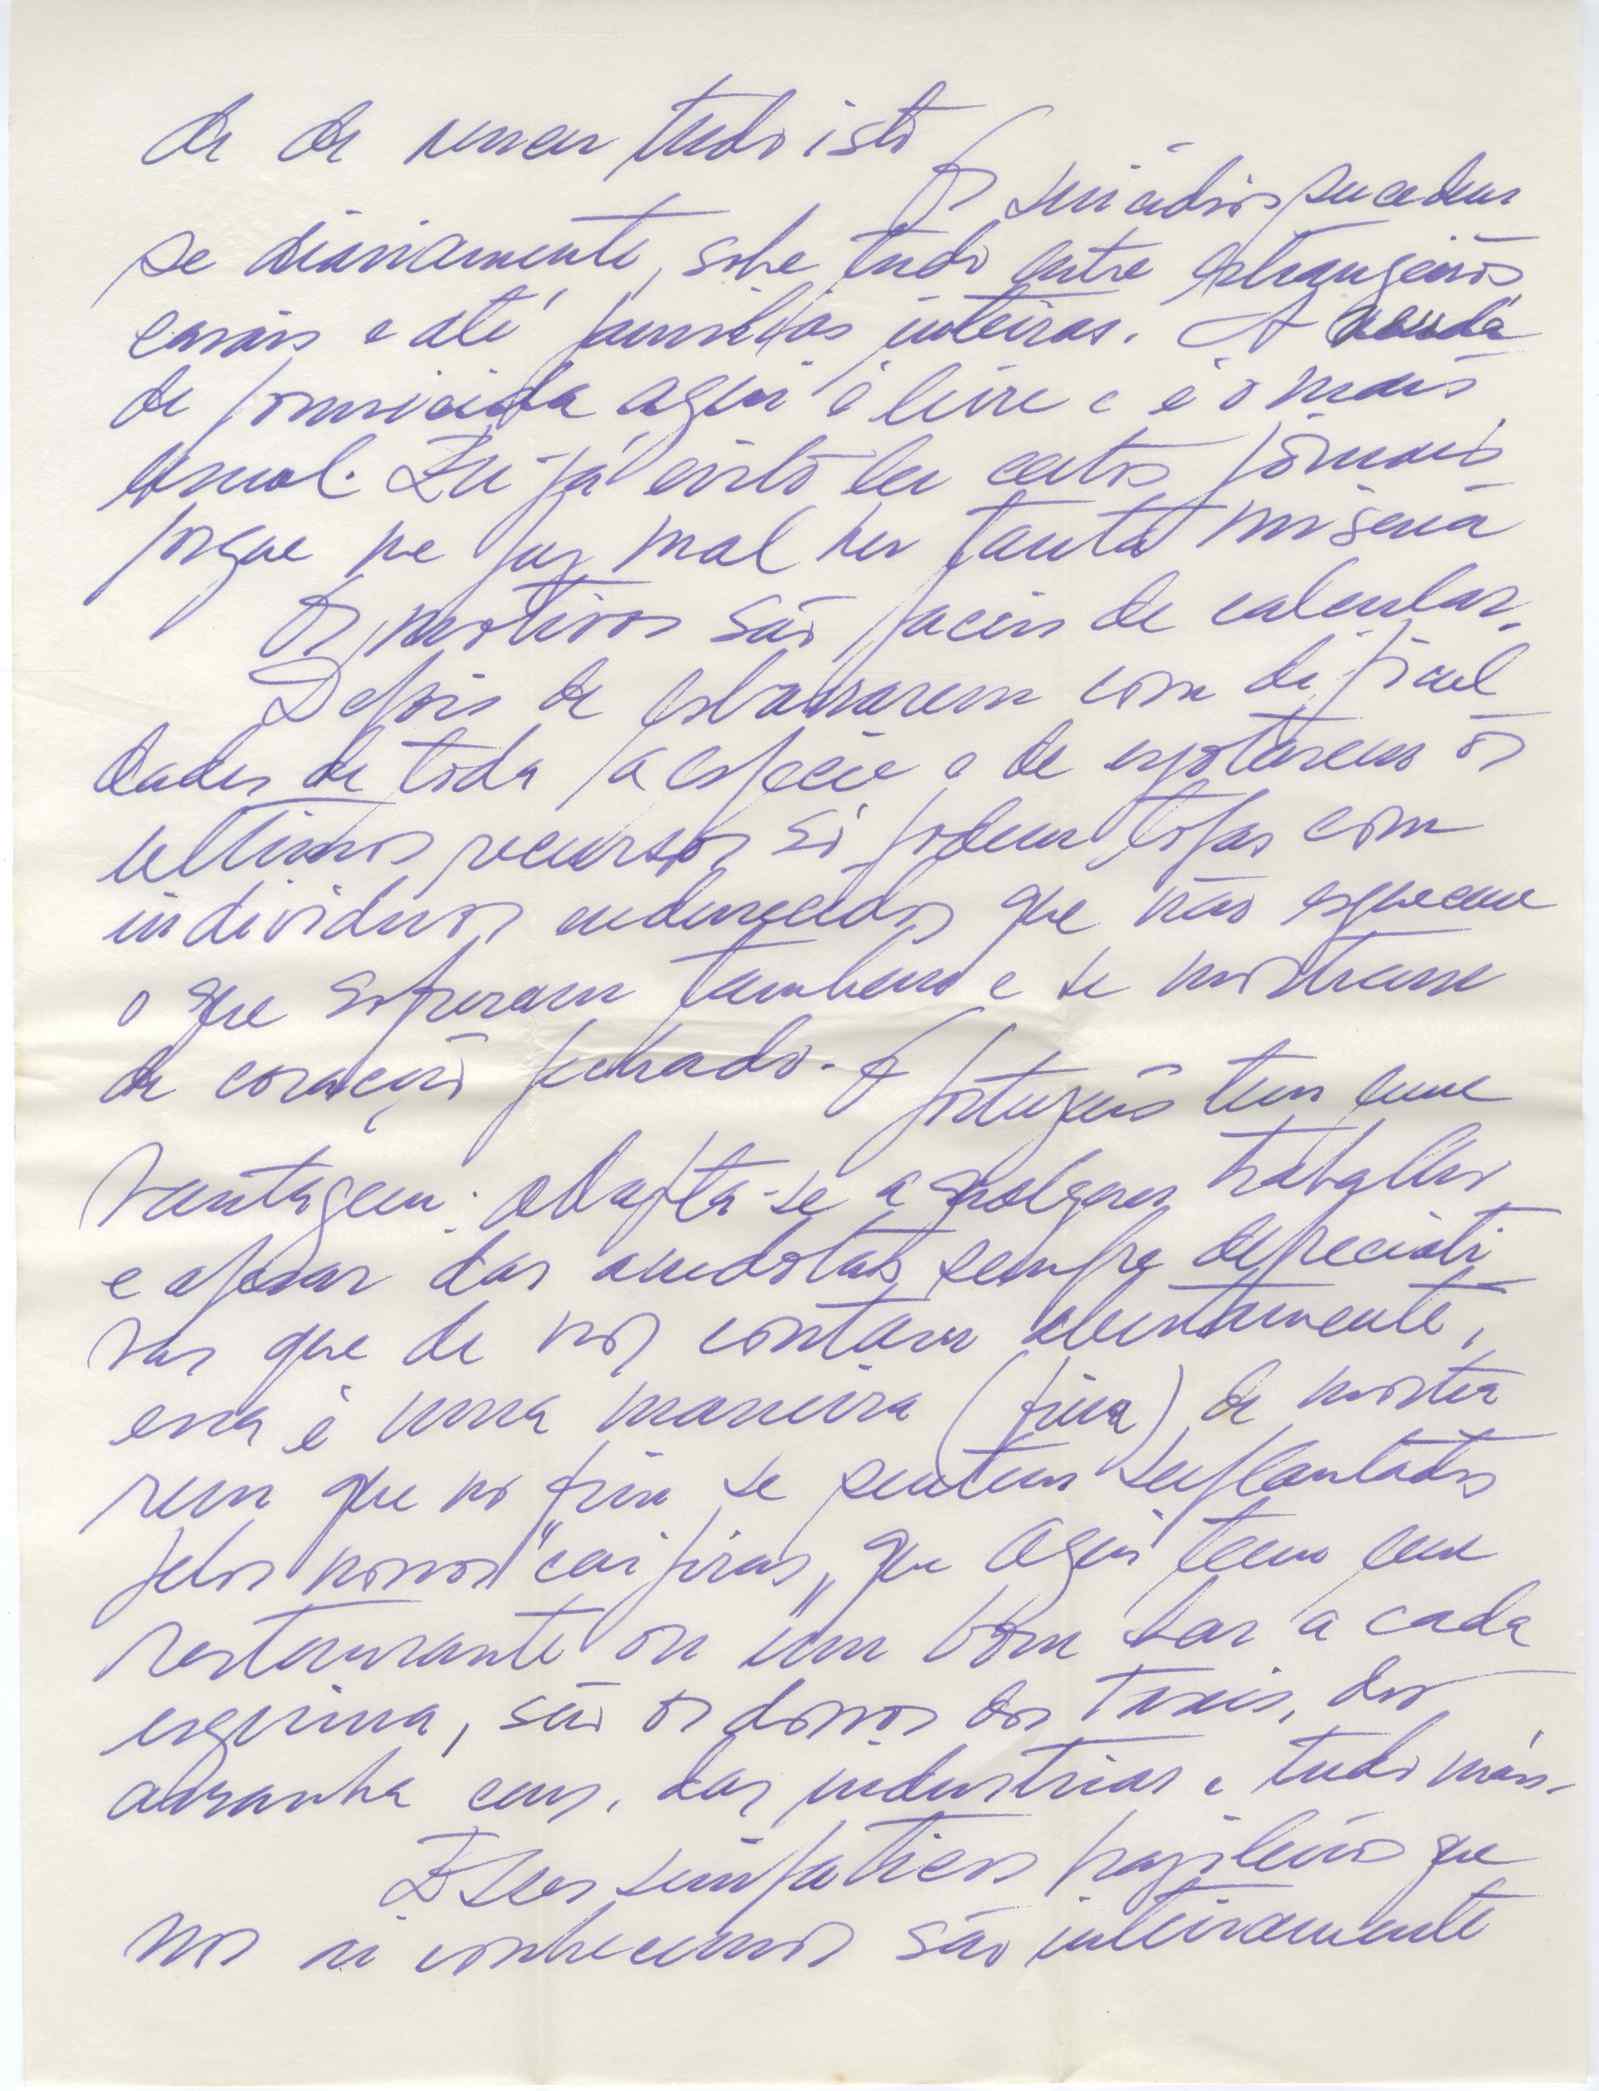 de de vencer tudo isto
Os suicidios sucedem
se diáriamente, sobre tudo entre estrangeiros
casais e até familias inteiras. A venda
de formicida aqui é livre e é o mais
usual. Eu já evito ler certos jornais
porque me faz mal ver tanta miseria
Os motivos são faceis de calcular.
Depois de esbarrarem com dificul
dades de toda a especie e de esgotarem os
ultimos recursos, só podem topar com
individuos endurecidos que não esquecem
o que sofreram tambem e se mostram
de coração fechado. O português tem uma
vantagem: adapta-se a qualquer trabalho
e apesar das anedotas sempre depreciati
vas que de nós contam abertamente,
essa é uma maneira (fina) de mostra
rem que no fim se sentem suplantados
pelos nossos "caipiras" que aqui teem um
restaurante ou um bom bar a cada
esquina, são os donos dos taxis, dos
arranha ceus, das industrias e tudo mais.
Esses simpaticos brasileiros que
nós ai conhecemos são inteiramente